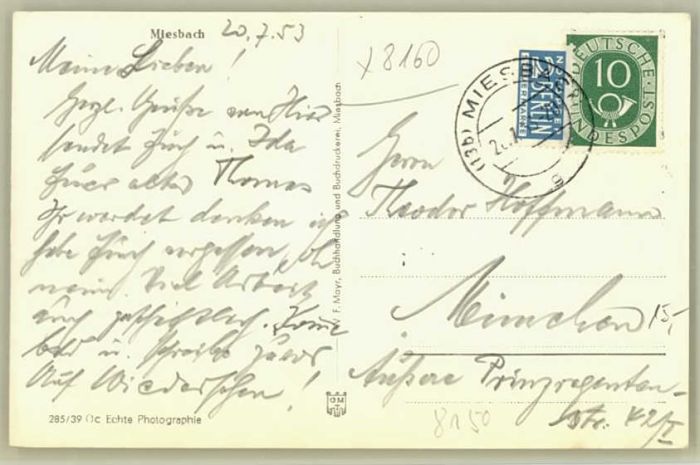 Miesbach 20.7.53
Meine Lieben!
Herzl. Grüße von Hier
sendet Euch u. Ida
Euer alter Thomas
Ihr werdet denken ich
habe Euch vergessen, Oh
nein. Viel Arbeit
auch
u. schreibe
Auf Wiedersehen!
285/39 Oc Echte Photographie
F. Mayr, Buchhandlung und Buchdruckerei, Miesbach
x8160
NOTOPFER
2 BERLIN
STEUERMARKE
DEUTSCHE
10
BUNDESPOST
(13b) MIESBACH
Herrn
Theodor Hoffmann
München 15,
Äußere Prinzregenten-
str. 42/I
8150